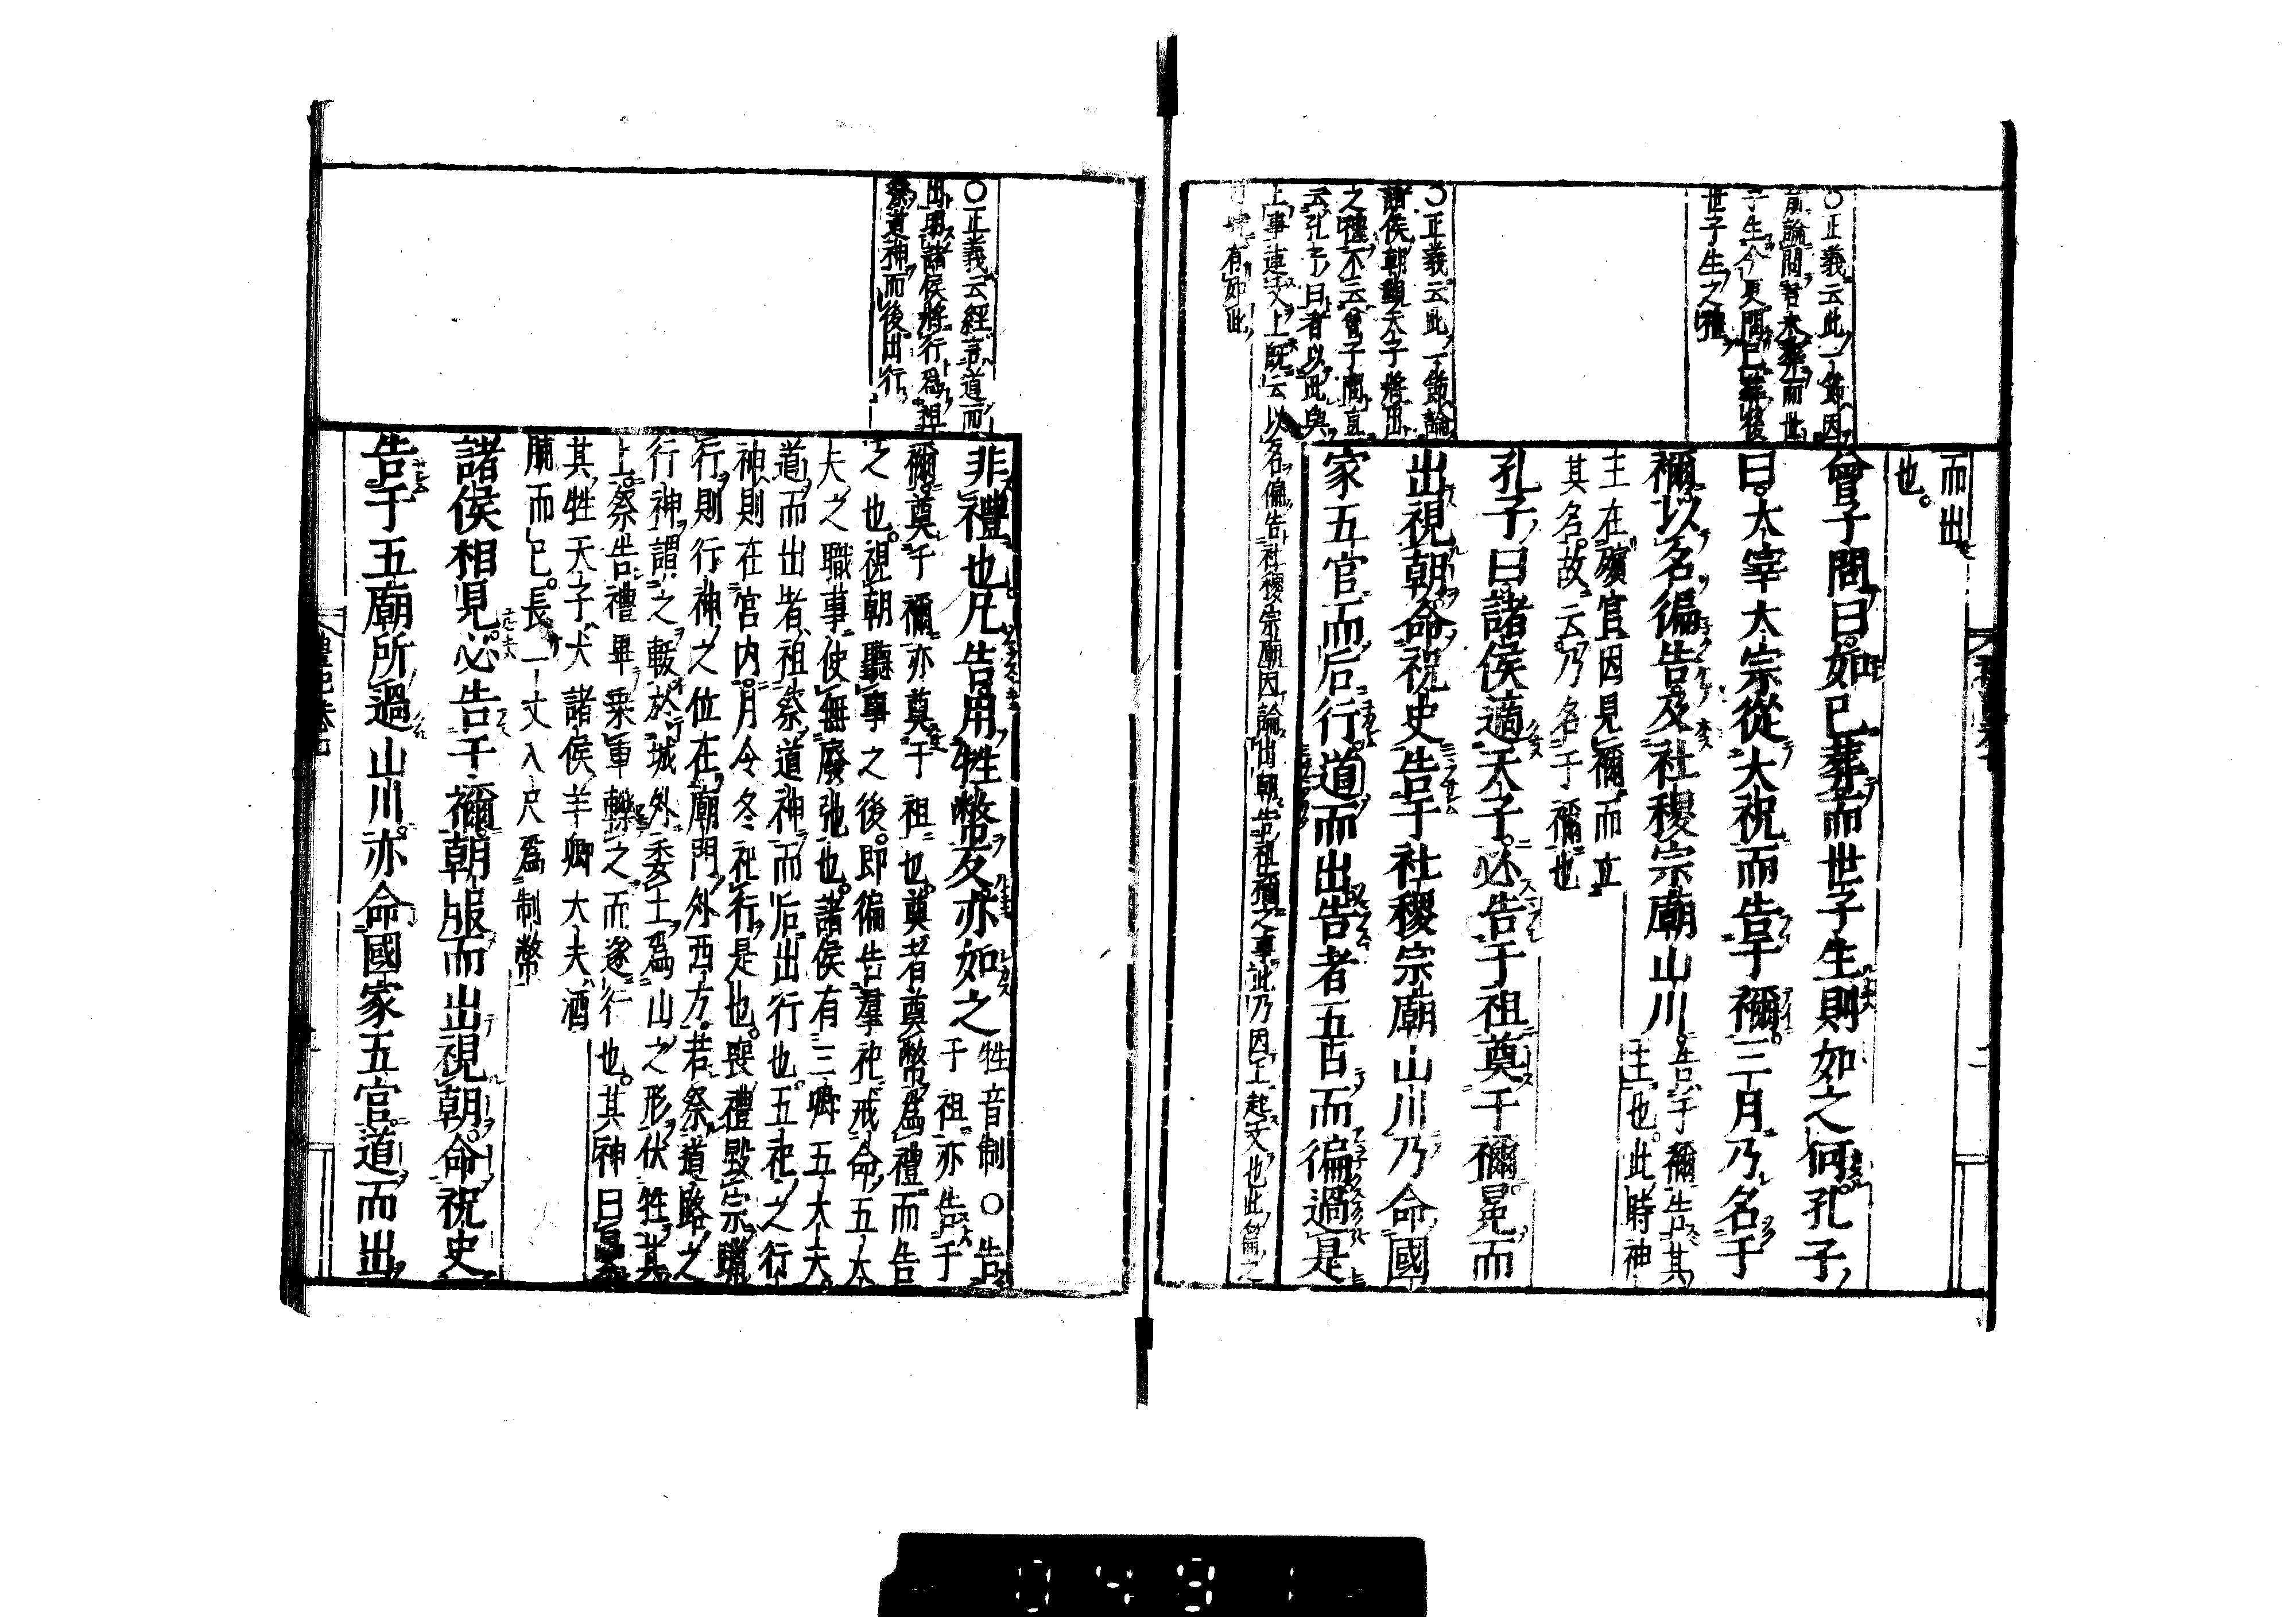 而出
也。
曾子問曰。如已葬而世子生則如之何。孔子
曰。大宰大宗從大祝而告于禰。三月乃名于
禰以名徧告及社稷宗廟山川。告于禰告其
主也。此時神
主在殯宮因見禰而立
其名。故云乃名于禰也
孔子曰諸侯適天子。必告于祖奠于禰。冕而
出視朝。命祝史告于社稷宗廟山川乃命國
家五官而后行。道而出告者五日而徧過是
〇正義云此一節因
前論問君未葬而世
子生今更問已葬後
世子生之禮
〇正義云此一節論
諸侯朝覲天子將出
之禮不云曾子問直
云孔子曰者以此與
上事連文上既云以名徧告社稷宗廟因論出朝告祖禰之事此乃因上起文也此篇之
有如此
非禮也。凡告用牲幣反亦如之牲音制〇告
于祖。亦告于
禰。奠于禰亦奠于祖也。奠者奠幣爲禮而告
之也。視朝聽事之後。即徧告羣祀戒命五大
夫之職事使無廢弛也。諸侯有三卿五大夫。
道而出者祖祭道神而后出行也。五祀之行
神則在宮内。月令冬祀行是也。喪禮毀宗躐
行則行神之位在廟門外西方。若祭道路之
行神謂之軷於城外委土爲山之形伏牲其
上。祭告禮畢乘車轢之而遂行也。其神曰纍
其牲天子犬諸侯羊卿大夫酒
脯而已。長一丈八尺爲制幣
諸侯相見必告于禰。朝服而出視朝。命祝史
告于五廟所過山川。亦命國家五官。道而出
〇正義云經言道而
出明諸侯將行爲祖
祭道神而後出行